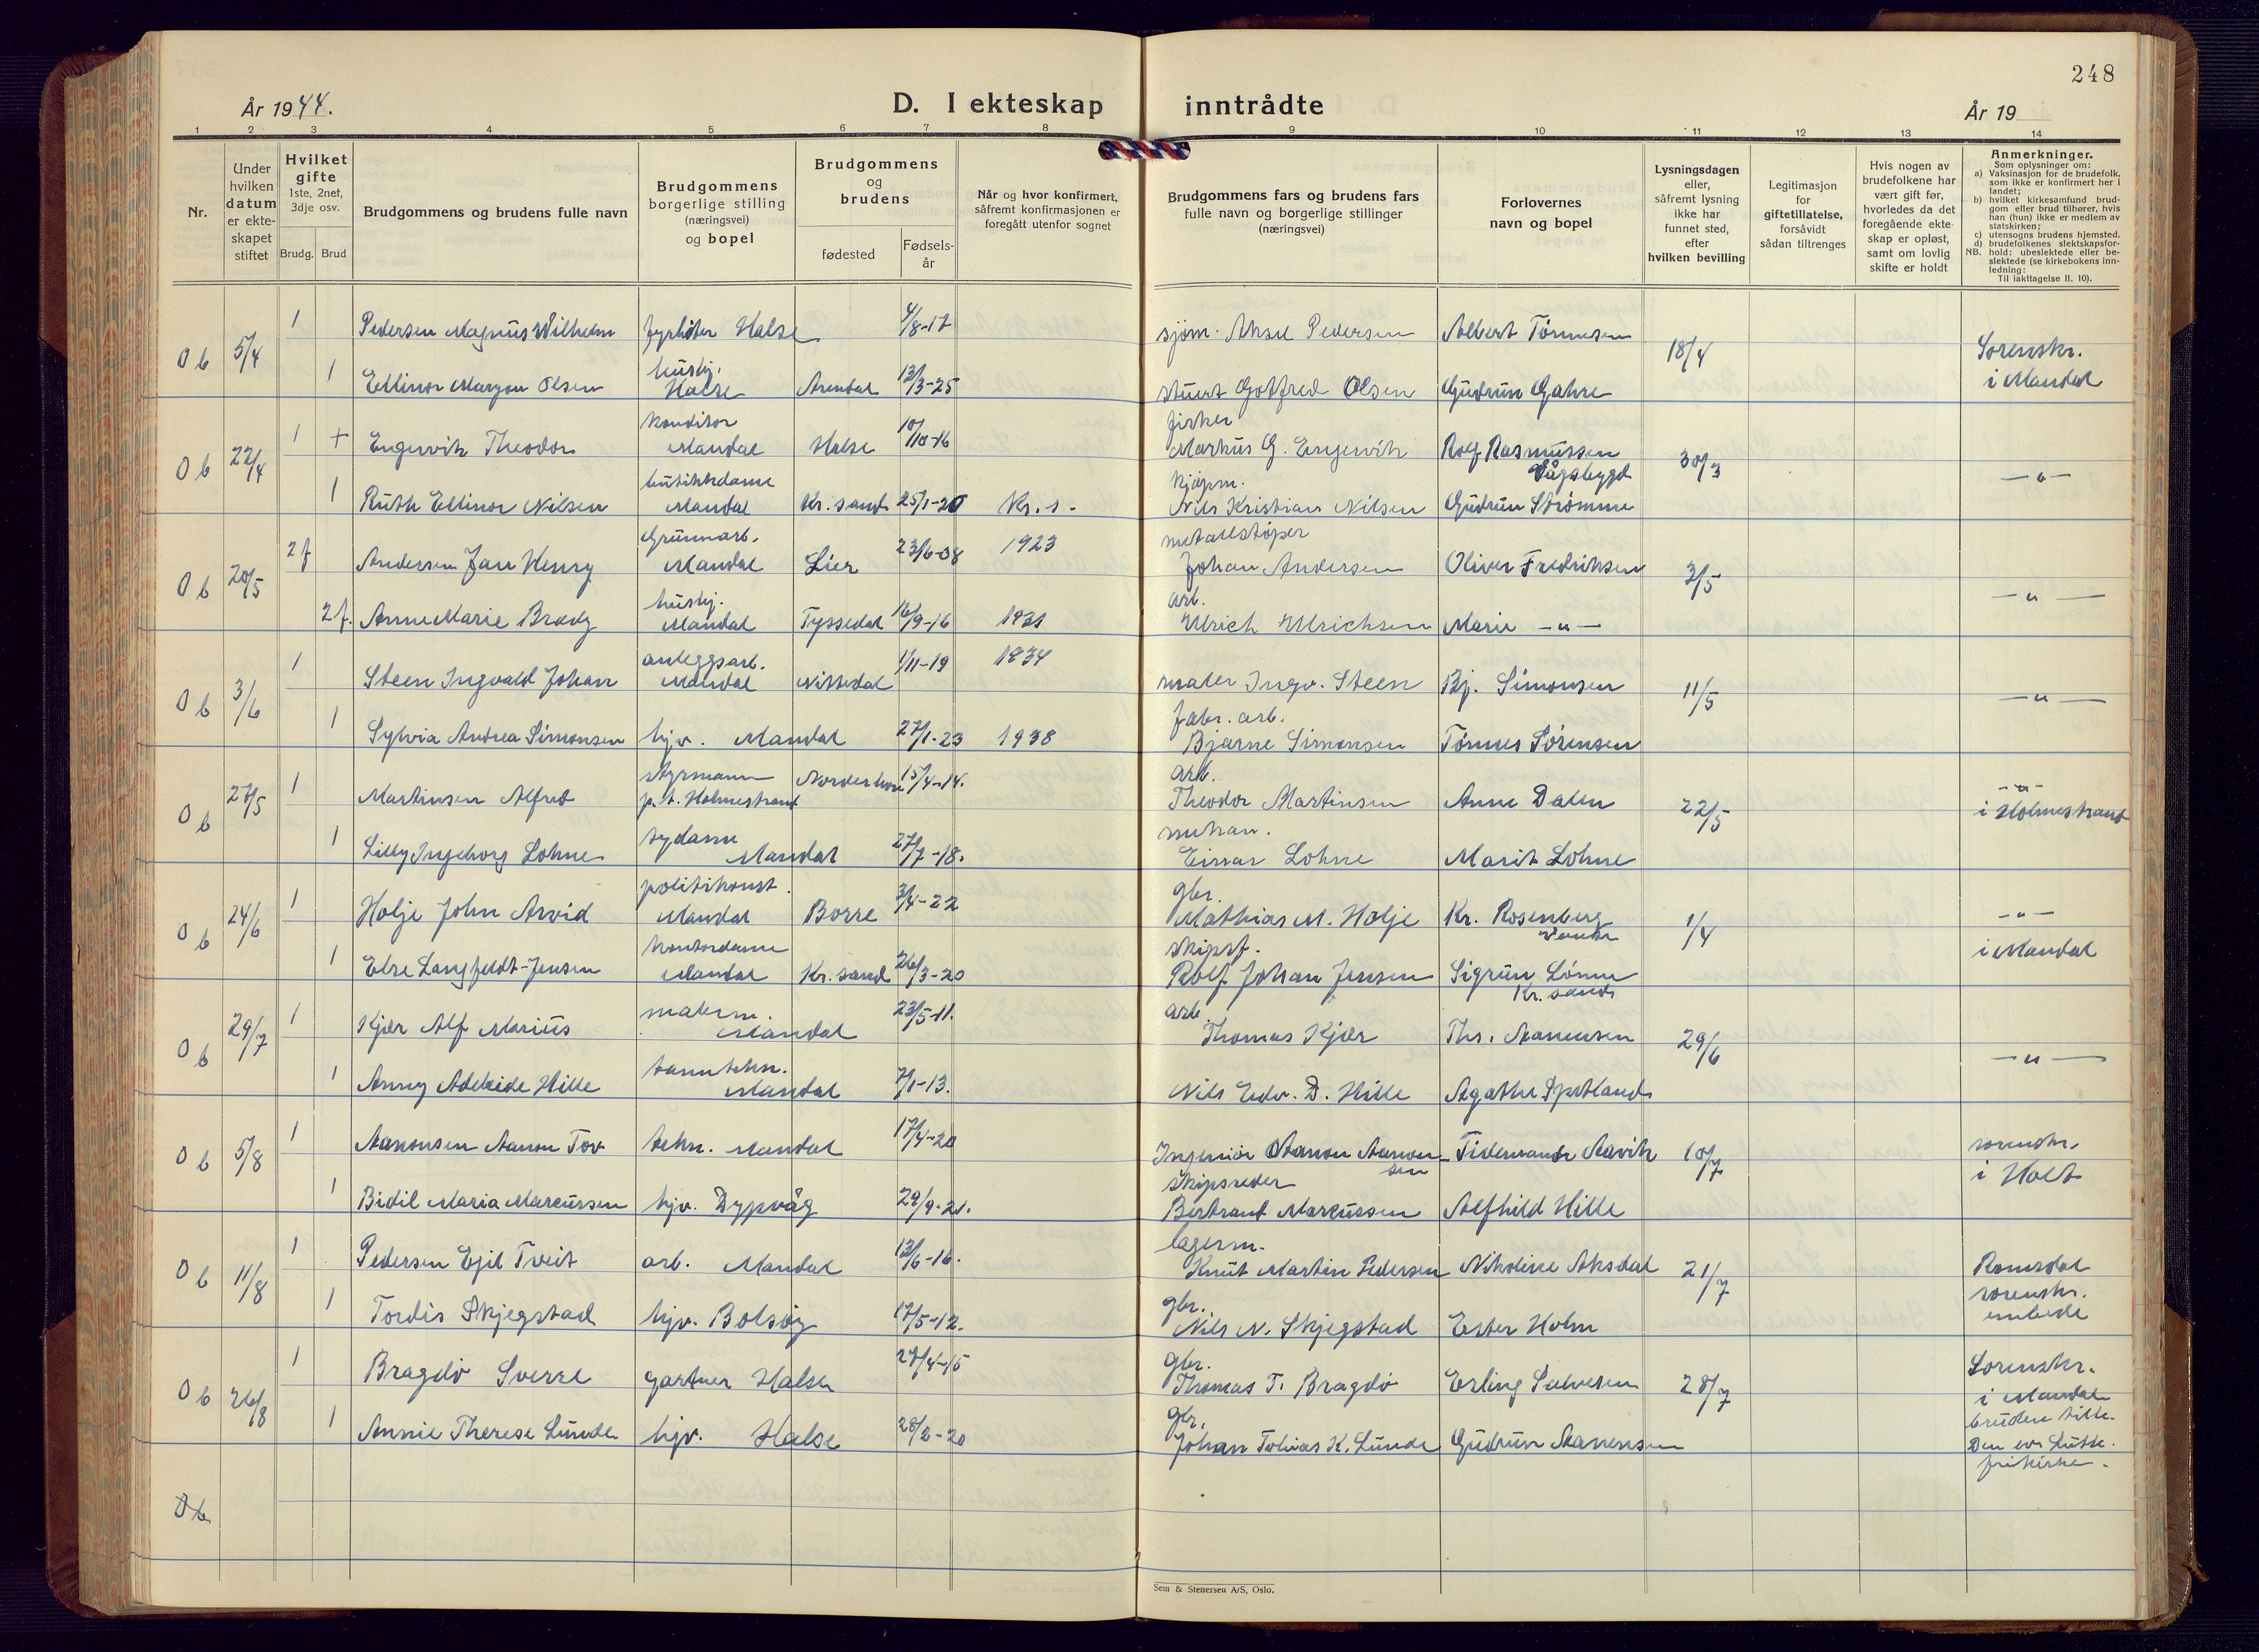 248
År 1944.
D. I ekteskap inntrådte
År 19
1 2 3 4 5 6 7 8 9 10 11 12 13 14
Nr.
Under hvilken datum er ekteskapet stiftet
Hvilket gifte
1ste, 2net, 3dje osv.
Brudg. Brud
Brudgommens og brudens fulle navn
Brudgommens borgerlige stilling (næringsvei) og bopel
Brudgommens og brudens
fødested
Fødsels-år
Når og hvor konfirmert, såfremt konfirmasjonen er foregått utenfor sognet
Brudgommens fars og brudens fars fulle navn og borgerlige stillinger (næringsvei)
Forlovernes navn og bopel
Lysningsdagen eller, såfremt lysning ikke har funnet sted, efter hvilken bevilling
Legitimasjon for giftetillatelse, forsåvidt sådan tiltrenges
Hvis nogen av brudefolkene har vært gift før, hvorledes da det foregående ekteskap er opløst, samt om lovlig skifte er holdt
Anmerkninger.
Som oplysninger om:
a) Vaksinasjon for de brudefolk, som ikke er konfirmert her i landet;
b) hvilket kirkesamfund brudgom eller brud tilhører, hvis han (hun) ikke er medlem av statskirken;
c) utensogns brudens hjemsted.
d) brudefolkenes slektskapsforhold: ubeslektede eller beslektede (se kirkebokens innledning:
NB.
Til iakttagelse II. 10).
0 b 5/4 1 Pedersen Magnus Wilhelm fyrbøter Halse 4/8-17 sjøm. Aksel Pedersen Albert Tønnesen 18/4 Sorenskr. i Mandal
1 Ellinor Margon Olsen husbj. Halse Arendal 12/3-25 stuert Gotfred Olsen Gudrun Gahre
0 b 22/4 1 + Engervik Theodor konditor Mandal Halse 10/10-16 fisker Markus G. Engervik Rolf Rasmussen Vågsbygd 30/3 -"-
1 Ruth Ellinor Nilsen butikkdame Mandal Kr.sand 25/1-20 Kr. s. kjøpm. Nils Kristian Nilsen Gudrun Strømme
0 b 20/5 2f Andersen Jan Henry Grunnarb. Mandal Lier 23/6-08 1923 metallstøper Johan Andersen Oliver Fredriksen 2/5 -"-
2f. Anne Marie Brødy husbj. Mandal Tyssedal 16/9-16 1931 arb. Ulrich Ulrichsen Marie -"-
0 b 3/6 1 Steen Ingvald Johan anleggsarb. Mandal Nissedal 1/11-19 1934 maler Ingv. Steen Bj. Simonsen 11/5 -"-
1 Sylvia Andrea Simonsen hjv. Mandal 27/1-23 1938 fabr. arb. Bjarne Simonsen Tønnes Sørensen
0 b 27/5 1 Martinsen Alfred styrmann p.t. Holmestrand Norderhov 15/4-14. arb. Theodor Martinsen Anne Dalen 22/5 -"- i Holmestrand
1 Lilly Ingeborg Lohne sydame Mandal 27/7-18. mekan. Einar Lohne Marit Lohne
0 b 24/6 1 Holje John Arvid politikonst. Mandal Borre 3/4-22 gbr. Mathias M. Holje Kr. Rosenberg 1/4 -"- i Mandal
1 Else Langfeldt-Jensen kontordame Mandal Kr.sand 26/3-20 skipsf. Rolf Johan Jensen Sigrun Lønne Kr. sand
0 b 29/7 1 Kjær Alf Marius malerm. Mandal 23/5-11. arb. Thomas Kjær Ths. Aanensen 29/6 -"-
1 Anny Adelaide Hille tanntekn. Mandal 7/1-13. Nils Edv. D. Hille Agathe Spetland
0 b 5/8 1 Aanonsen Aanon Tov tekn. Mandal 17/4-20 Ingeniør Aanon Aanonsen Tidemande Aavik 10/7 sorenskr. i Holt
1 Bidil Maria Marcussen hjv. Dypvåg 29/9-21. Skipsreder Bertrand Marcussen Alfhild Hille
0 b 11/8 1 Pedersen Egil Tveit arb. Mandal 12/6-16. lagerm. Knut Martin Pedersen Nikoline Aksdal 21/7 Romsdal sorenskr. embede
1 Tordis Skjegstad hjv. Bolsøy 17/5-12. gbr. Nils N. Skjegstad Ester Holm
0 b 26/8 1 Bragdø Sverre gartner Halse 27/4-15 gbr. Thomas T. Bragdø Erling Salvesen 28/7 Sorenskr. i Mandal
1 Annie Therese Lunde hjv. Halse 28/2-20 gbr. Johan Tobias K. Lunde Gudrun Aanensen bruden tilh. Den ev. Luth. frikirke.
0 b
Sem & Stenersen A/S, Oslo.